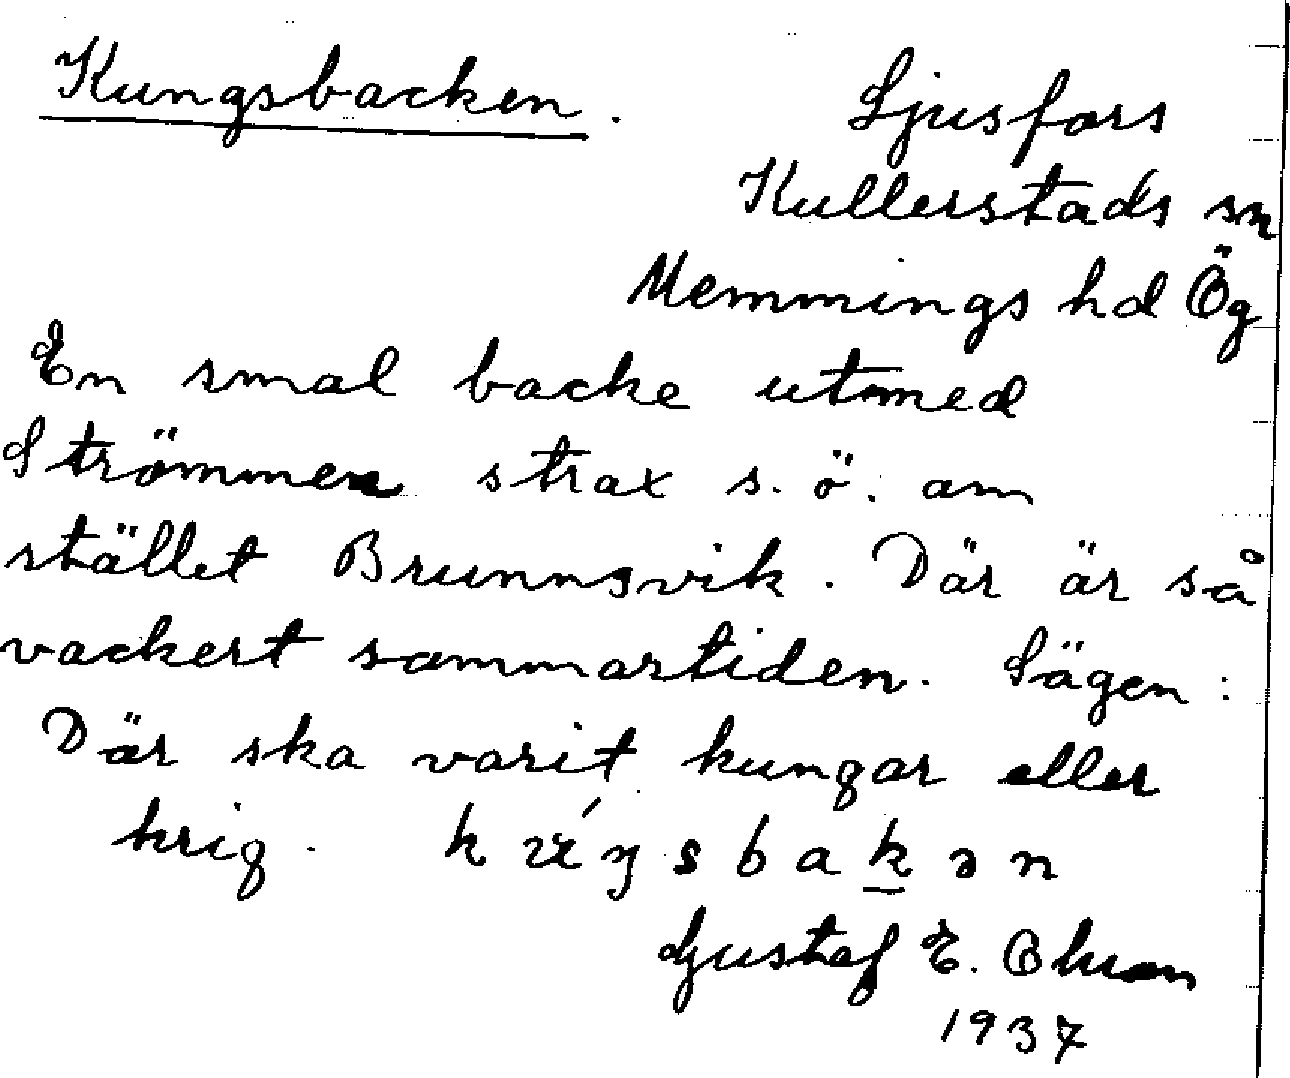 Kungsbacken.
Ljusfors
Kullerstads sn
Memmings hd Ög
En smal backe utmed
Strömmen strax s. ö. om
stället Brunnsvik. Där är så
vackert sommartiden. Sägen:
Där ska varit kungar eller
krig.
Gustaf E.
1937